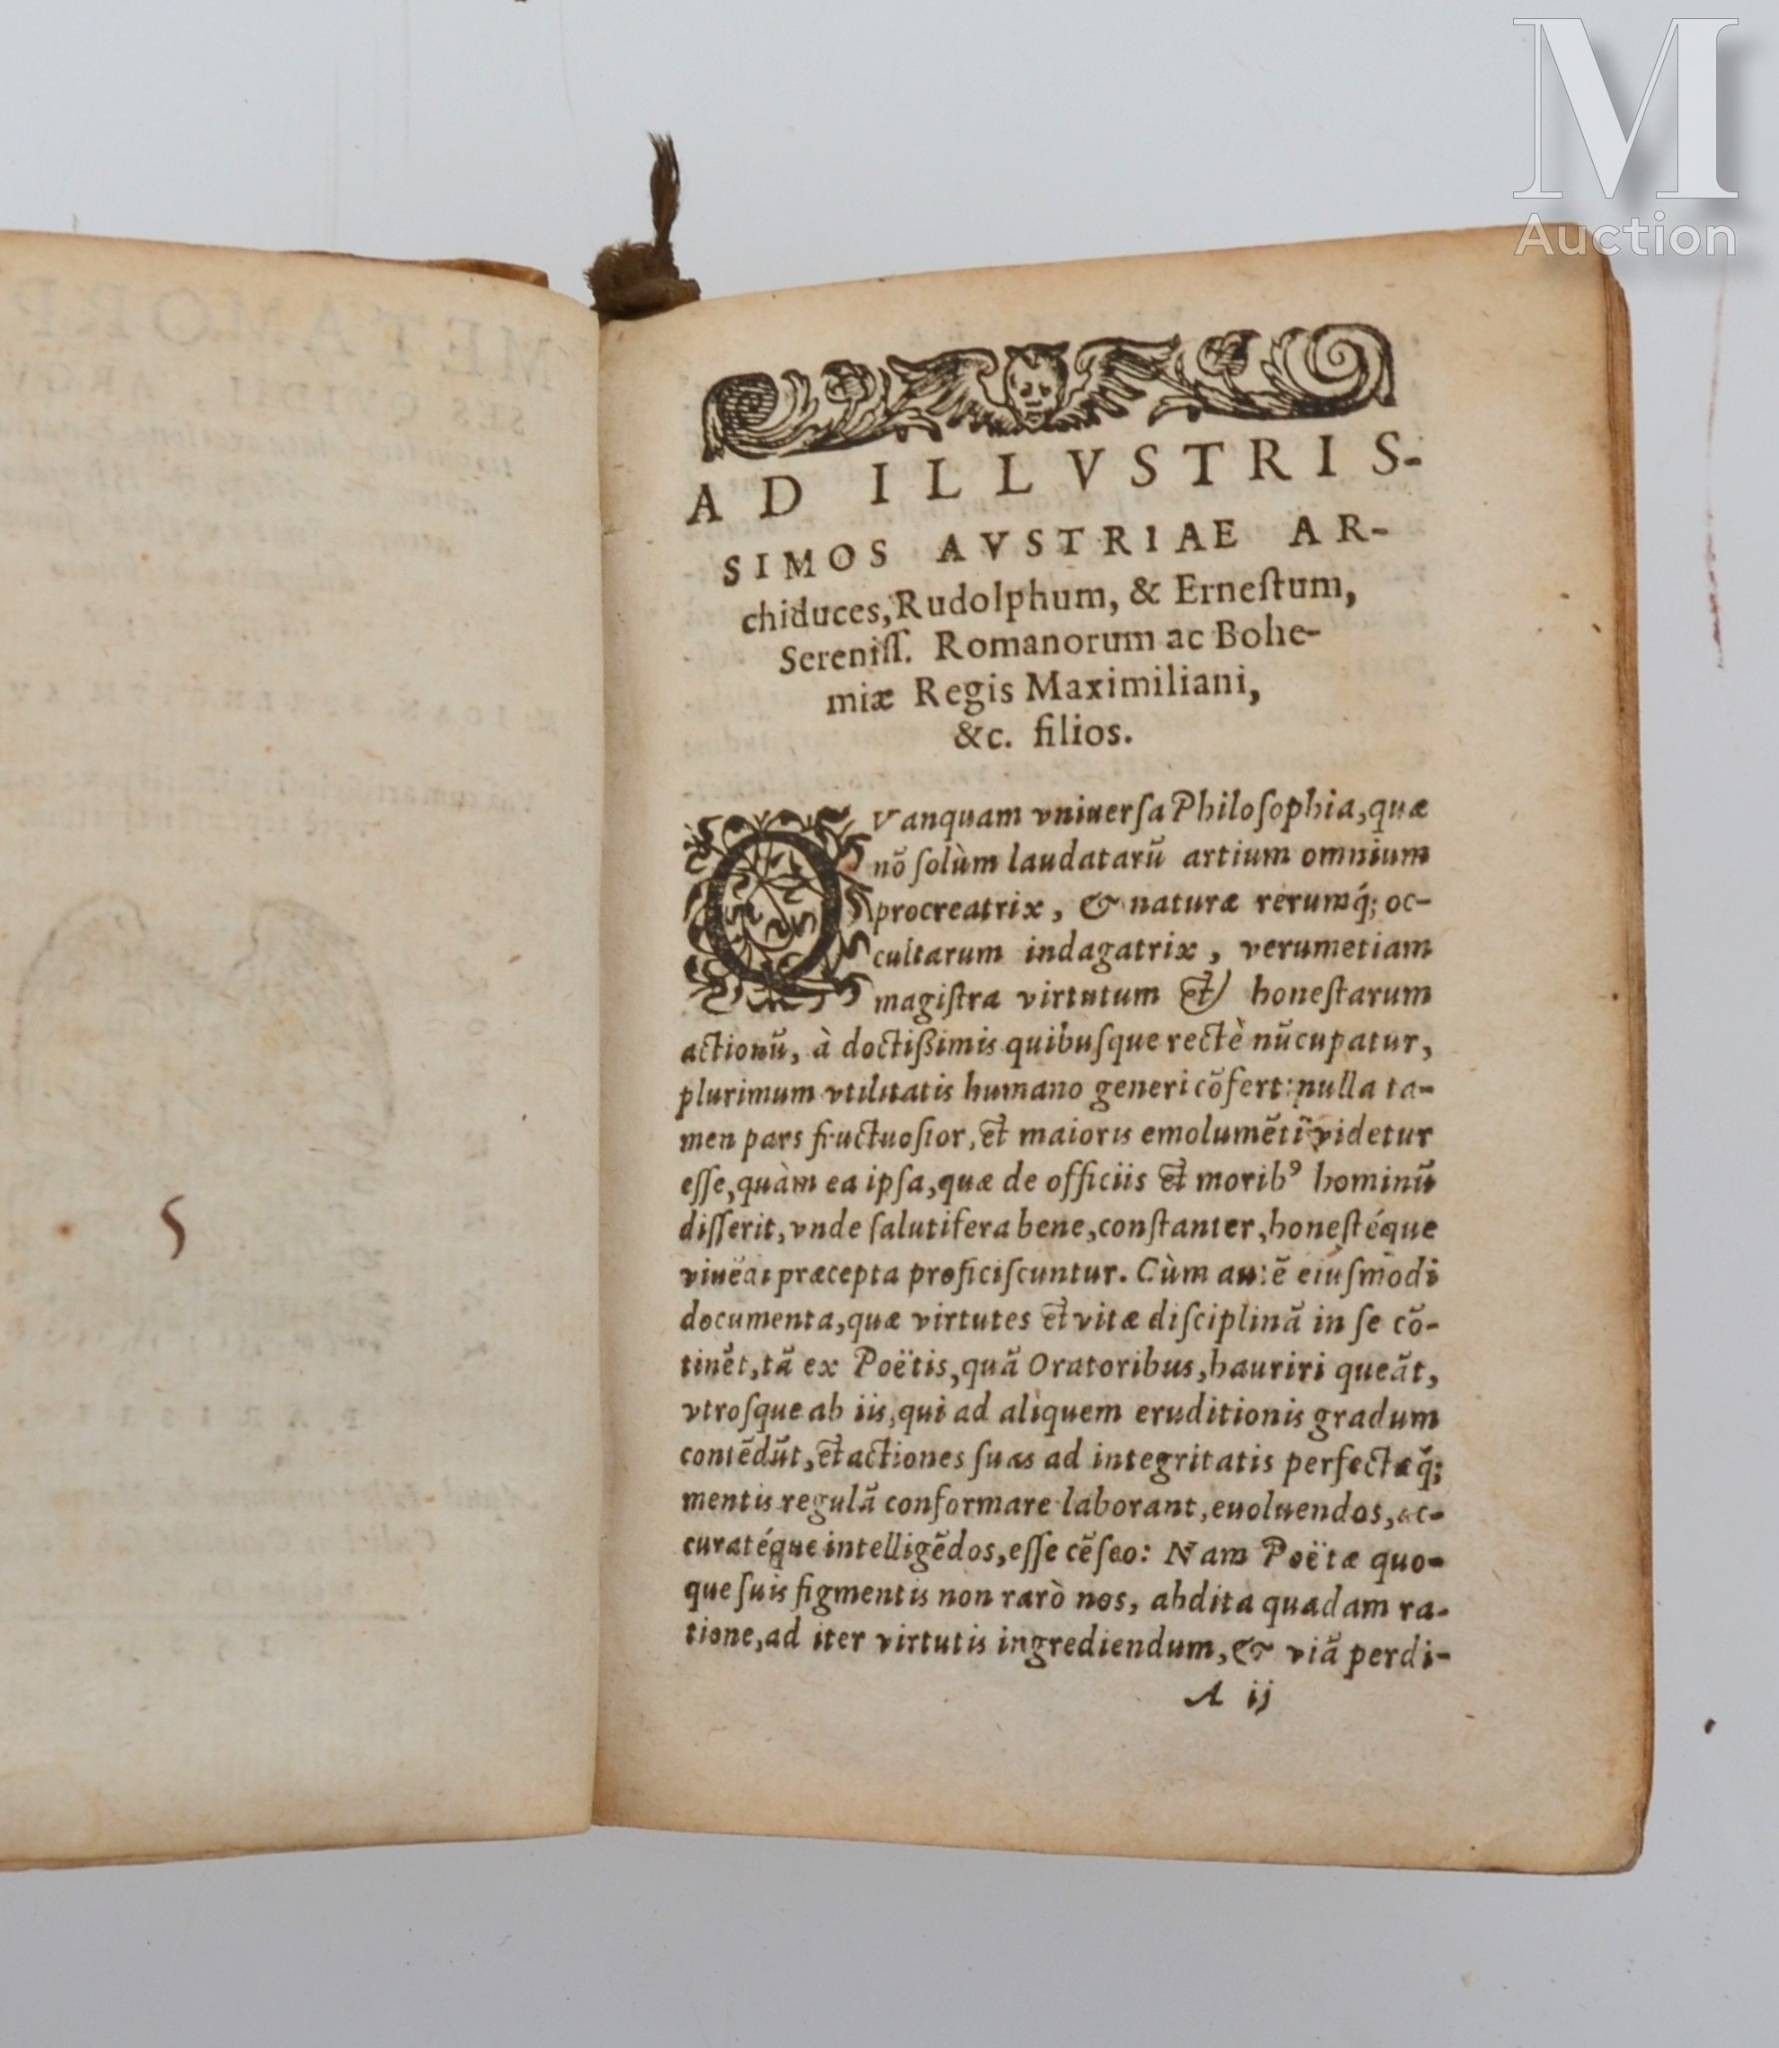 M
Auction
AD ILLVSTRIS-
SIMOS AVSTRIAE AR-
chiduces, Rudolphum, & Erneſtum,
Sereniſſ. Romanorum ac Bohe-
miæ Regis Maximiliani,
&c. filios.
QVanquam vniuerſa Philoſophia, quæ
nō ſolùm laudatarū artium omnium
procreatrix, & naturæ rerumq́; oc-
cultarum indagatrix, verumetiam
magiſtra virtutum et honeſtarum
actionū, à doctißimis quibuſque rectè nūcupatur,
plurimum vtilitatis humano generi cōfert: nulla ta-
men pars fructuoſior, et maioris emolumēti videtur
eſſe, quàm ea ipſa, quæ de officiis et moribꝰ hominū
diſſerit, vnde ſalutifera bene, conſtanter, honeſtéque
viuēdi præcepta proficiſcuntur. Cùm autē eiuſmodi
documenta, quæ virtutes et vitæ diſciplinā in ſe cō-
tinēt, tā ex Poëtis, quā Oratoribus, hauriri queāt,
vtroſque ab iis, qui ad aliquem eruditionis gradum
contēdūt, et actiones ſuas ad integritatis perfectæq́;
mentis regulā conformare laborant, euoluendos, ac-
curatéque intelligēdos, eſſe cēſeo: Nam Poëtæ quo-
que ſuis figmentis non rarò nos, abdita quadam ra-
tione, ad iter virtutis ingrediendum, & viā perdi-
A ij